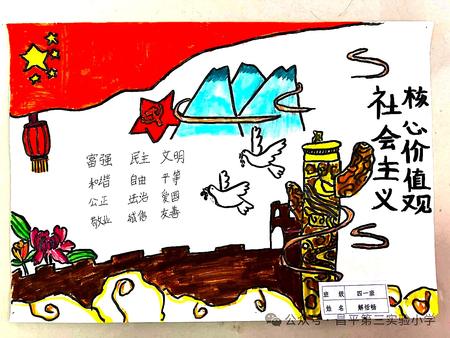 社会主义
核心价值观
富强 民主 文明
和谐 自由 平等
公正 法治 爱国
敬业 诚信 友善
班级 四一班
姓名 解恬畅
公众号·昌平第三实验小学